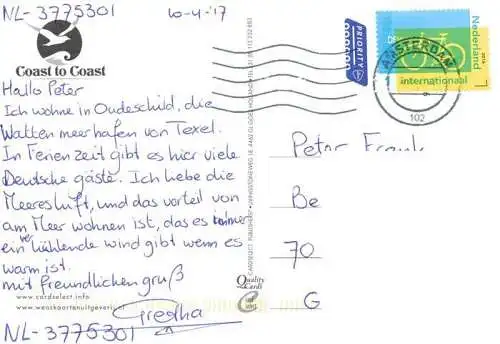 NL-3775301 10-4-'17
Coast to Coast
PRIORITY
Nederland
AMSTERDAM
internationaal
1
102
Hallo Peter
Ich wohne in Oudeschild, die
Watten meer hafen von Texel.
In Ferien zeit gibt es hier viele
Deutsche gäste. Ich liebe die
Meeresluft, und das vorteil von
am Meer wohnen ist, das es immer
ein kühlende wind gibt wenn es
warm ist.
mit freundlichen gruß
Gretha
NL-3775301
www.cardselect.info
www.wenskaartenuitgeverij.nl
Quality
Cards
Peter Frank
Be
70
G